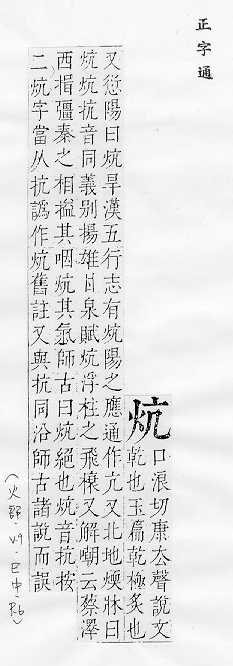 正字通
炕
口浪切康厺聲說文
乾也玉篇乾極炙也
又愆陽曰炕旱漢五行志有炕陽之應通作亢又北地煗牀曰
炕炕抗音同義別揚雄甘泉賦炕浮柱之飛榱又解嘲云蔡澤
西揖彊秦之相搤其咽炕其氣師古曰炕絕也炕音抗按
二炕字當从抗譌作炕舊註又與抗同沿師古諸說而誤
(火部.V.9.巳中.P.6)